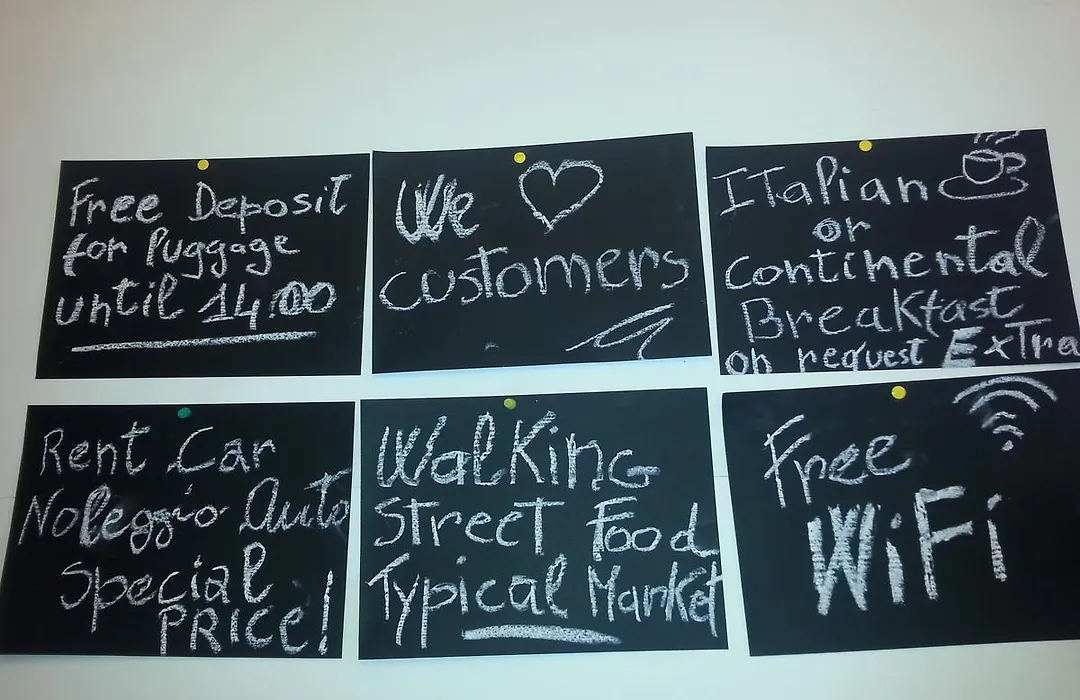 Free Deposit
for luggage
until 14:00
We ♡
customers
ITalian
or
continental
Breakfast
on request ExTra
Rent Car
Noleggio Auto
Special
PRICE!
Walking
Street Food
Typical Market
Free
WiFi